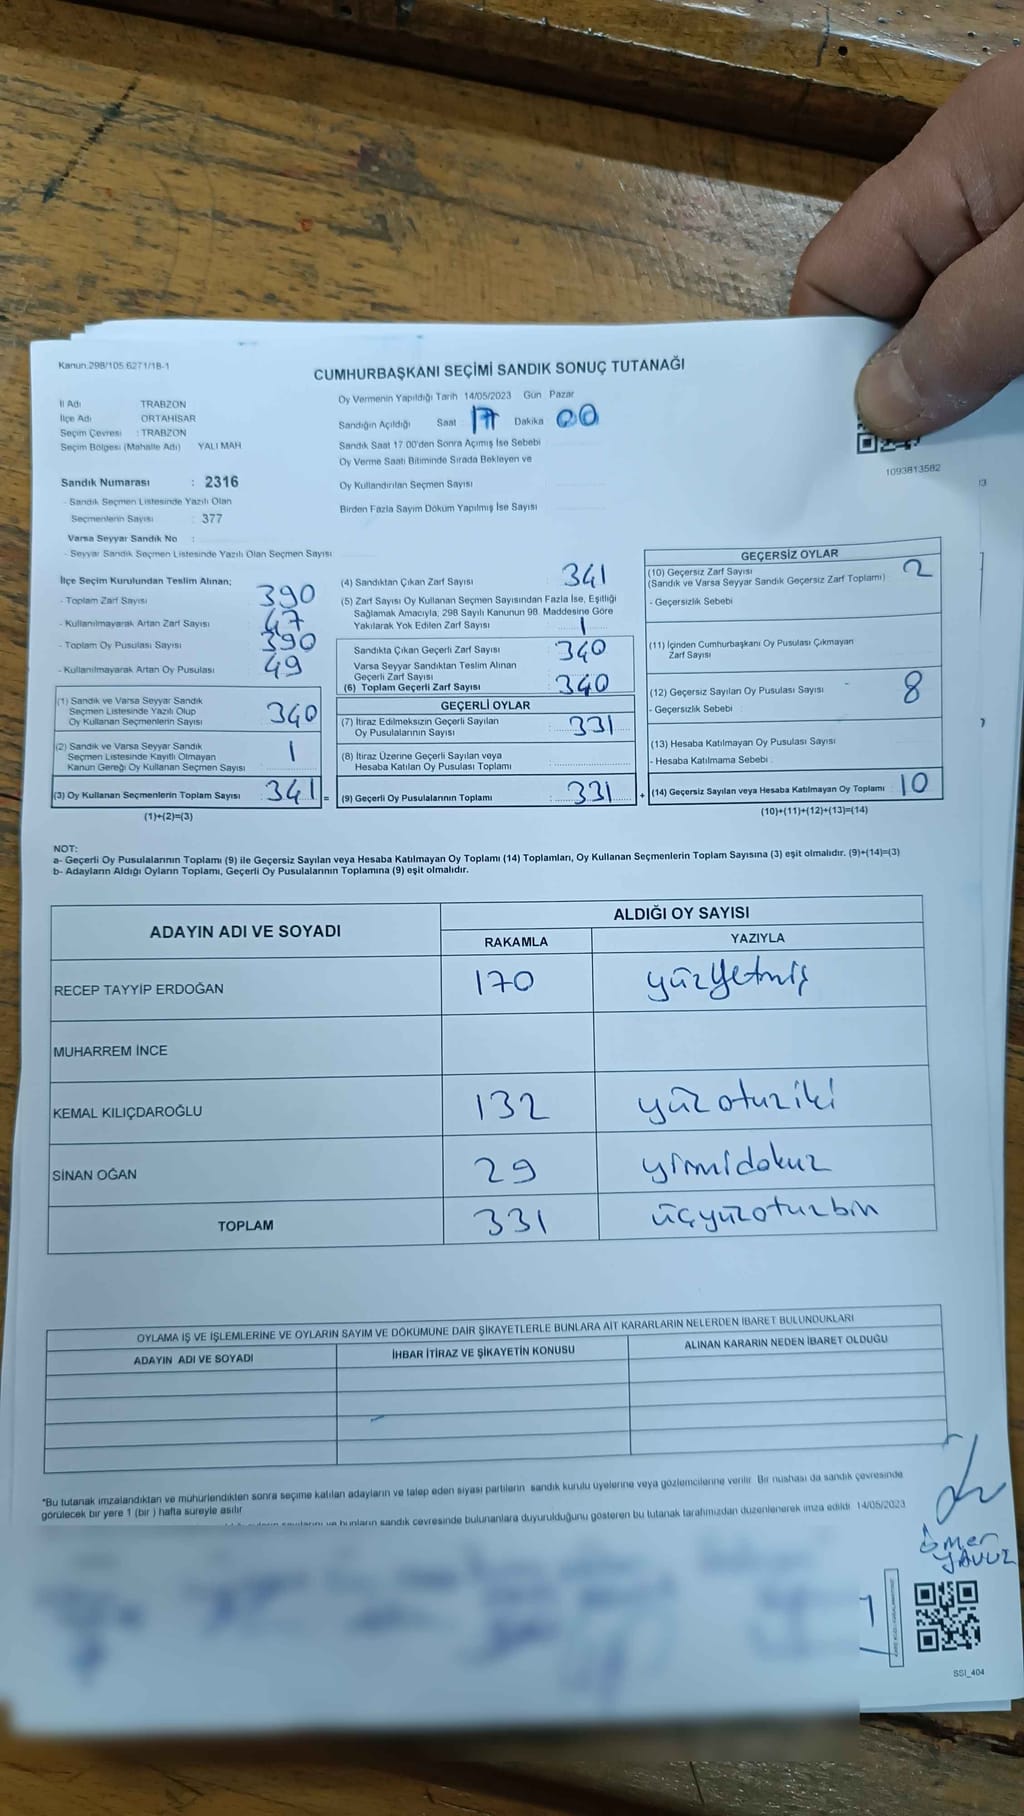 Kanun.298/105.6271/18-1
CUMHURBAŞKANI SEÇİMİ SANDIK SONUÇ TUTANAĞI
İl Adı TRABZON
İlçe Adı ORTAHİSAR
Seçim Çevresi : TRABZON
Seçim Bölgesi (Mahalle Adı) YALI MAH
Oy Vermenin Yapıldığı Tarih 14/05/2023 Gün Pazar
Sandığın Açıldığı Saat 17 Dakika 00
Sandık Saat 17 00'den Sonra Açımış İse Sebebi
Oy Verme Saati Bitiminde Sırada Bekleyen ve
Oy Kullandırılan Seçmen Sayısı
Birden Fazla Sayım Döküm Yapılmış İse Sayısı
1093813582
Sandık Numarası : 2316
- Sandık Seçmen Listesinde Yazılı Olan
Seçmenlerin Sayısı : 377
Varsa Seyyar Sandık No :
- Seyyar Sandık Seçmen Listesinde Yazılı Olan Seçmen Sayısı
İlçe Seçim Kurulundan Teslim Alınan;
- Toplam Zarf Sayısı 390
- Kullanılmayarak Artan Zarf Sayısı 47
- Toplam Oy Pusulası Sayısı 390
- Kullanılmayarak Artan Oy Pusulası 49
(1) Sandık ve Varsa Seyyar Sandık
Seçmen Listesinde Yazılı Olup
Oy Kullanan Seçmenlerin Sayısı 340
(2) Sandık ve Varsa Seyyar Sandık
Seçmen Listesinde Kayıtlı Olmayan
Kanun Gereği Oy Kullanan Seçmen Sayısı 1
(3) Oy Kullanan Seçmenlerin Toplam Sayısı 341 =
(1)+(2)=(3)
(4) Sandıktan Çıkan Zarf Sayısı 341
(5) Zarf Sayısı Oy Kullanan Seçmen Sayısından Fazla İse, Eşitliği
Sağlamak Amacıyla, 298 Sayılı Kanunun 98. Maddesine Göre
Yakılarak Yok Edilen Zarf Sayısı 1
Sandıkta Çıkan Geçerli Zarf Sayısı 340
Varsa Seyyar Sandıktan Teslim Alınan
Geçerli Zarf Sayısı
(6) Toplam Geçerli Zarf Sayısı 340
GEÇERLİ OYLAR
(7) İtiraz Edilmeksizin Geçerli Sayılan
Oy Pusulalarının Sayısı : 331
(8) İtiraz Üzerine Geçerli Sayılan veya
Hesaba Katılan Oy Pusulası Toplamı
(9) Geçerli Oy Pusulalarının Toplamı : 331 +
GEÇERSİZ OYLAR
(10) Geçersiz Zarf Sayısı 2
(Sandık ve Varsa Seyyar Sandık Geçersiz Zarf Toplamı)
- Geçersizlik Sebebi
(11) İçinden Cumhurbaşkanı Oy Pusulası Çıkmayan
Zarf Sayısı
(12) Geçersiz Sayılan Oy Pusulası Sayısı 8
- Geçersizlik Sebebi
(13) Hesaba Katılmayan Oy Pusulası Sayısı
- Hesaba Katılmama Sebebi
(14) Geçersiz Sayılan veya Hesaba Katılmayan Oy Toplamı : 10
(10)+(11)+(12)+(13)=(14)
NOT:
a- Geçerli Oy Pusulalarının Toplamı (9) ile Geçersiz Sayılan veya Hesaba Katılmayan Oy Toplamı (14) Toplamları, Oy Kullanan Seçmenlerin Toplam Sayısına (3) eşit olmalıdır. (9)+(14)=(3)
b- Adayların Aldığı Oyların Toplamı, Geçerli Oy Pusulalarının Toplamına (9) eşit olmalıdır.
ADAYIN ADI VE SOYADI ALDIĞI OY SAYISI
RAKAMLA YAZIYLA
RECEP TAYYİP ERDOĞAN 170 yüzyetmiş
MUHARREM İNCE
KEMAL KILIÇDAROĞLU 132 yüzotuziki
SİNAN OĞAN 29 yirmidokuz
TOPLAM 331 üçyüzotuzbir
OYLAMA İŞ VE İŞLEMLERİNE VE OYLARIN SAYIM VE DÖKÜMÜNE DAİR ŞİKAYETLERLE BUNLARA AİT KARARLARIN NELERDEN İBARET BULUNDUKLARI
ADAYIN ADI VE SOYADI İHBAR İTİRAZ VE ŞİKAYETİN KONUSU ALINAN KARARIN NEDEN İBARET OLDUĞU
*Bu tutanak imzalandıktan ve mühürlendikten sonra seçime katılan adayların ve talep eden siyasi partilerin sandık kurulu üyelerine veya gözlemcilerine verilir. Bir nüshası da sandık çevresinde
görülecek bir yere 1 (bir ) hafta süreyle asılır.
bunların sandık çevresinde bulunanlara duyurulduğunu gösteren bu tutanak tarafımızdan düzenlenerek imza edildi 14/05/2023
Ömer
YAVUZ
SSI_404